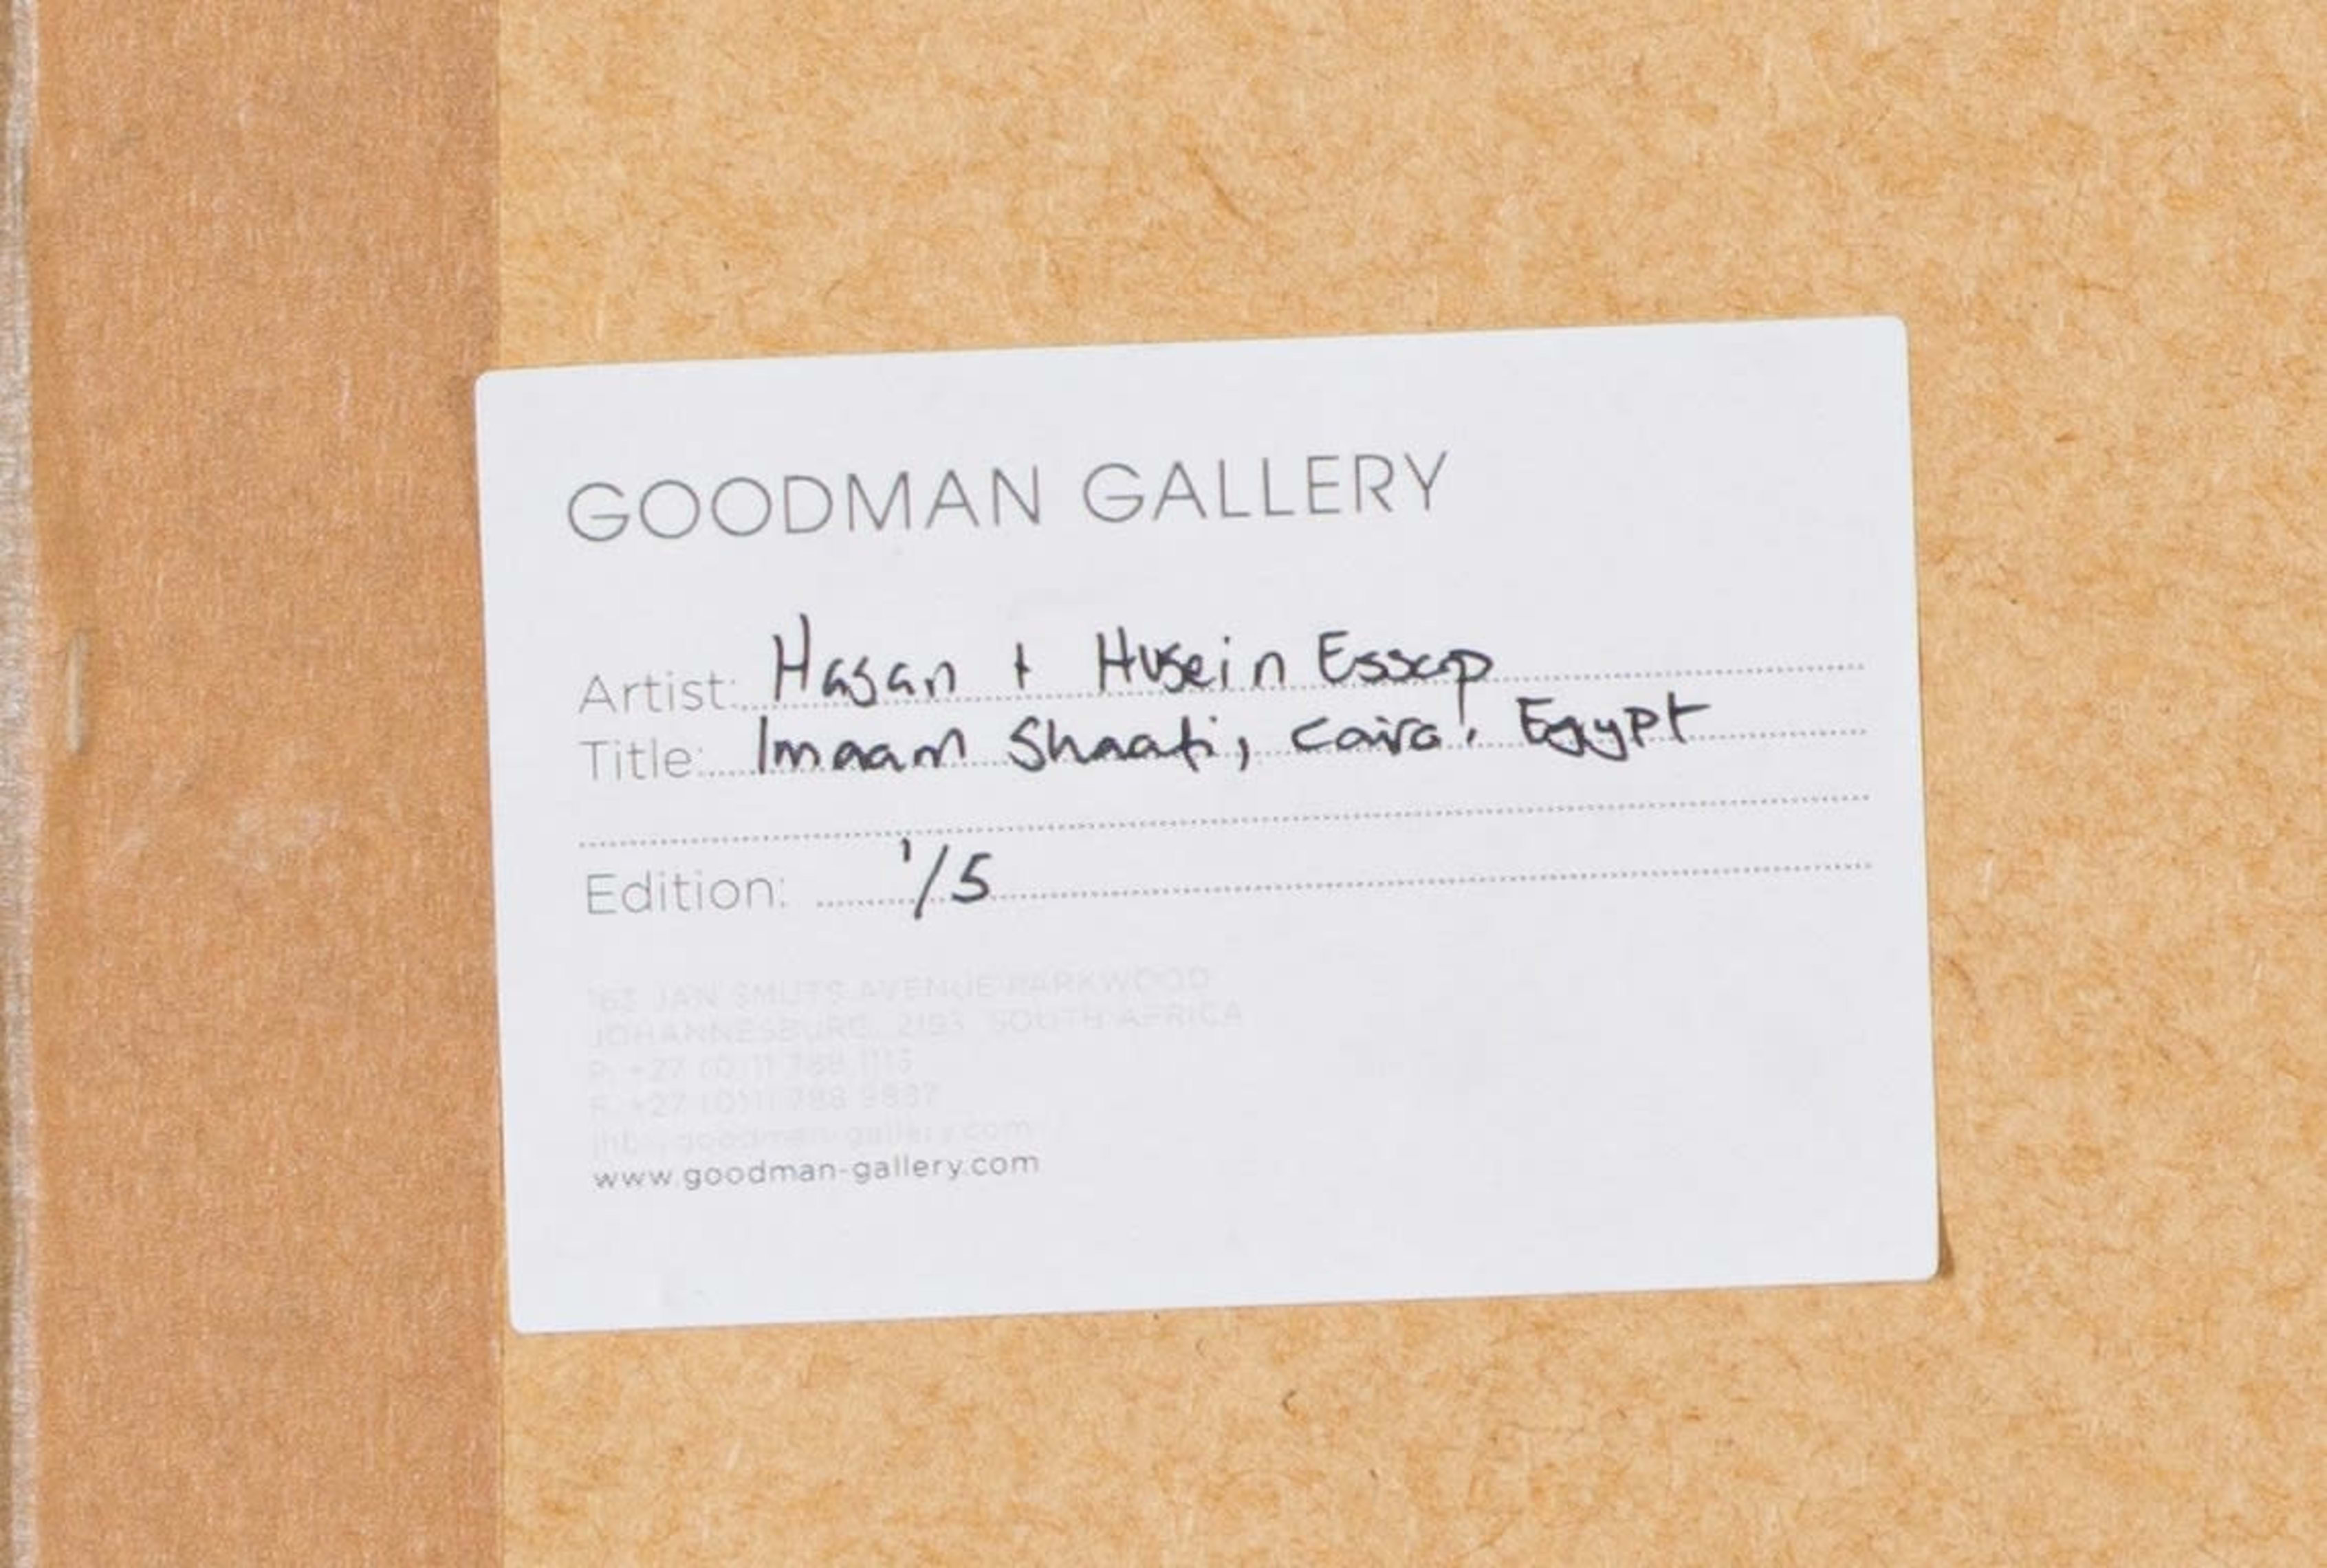 GOODMAN GALLERY
Artist: Hasan + Husein Essop
Title: Imaam Shaafi, Cairo, Egypt
Edition: 1/5
163 JAN SMUTS AVENUE PARKWOOD
JOHANNESBURG, 2193, SOUTH AFRICA
P. +27 (0)11 788 1113
F. +27 (0)11 788 9887
jhb@goodman-gallery.com
www.goodman-gallery.com